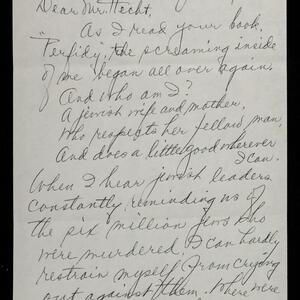 Dear Mr. Hecht,
As I read your book,
"Perfidy, the screaming inside
of me began all over again.
And who am I?
A jewish wife and mother,
Who respects her fellow man,
And does a little good wherever
I can.
When I hear jewish leaders
constantly, reminding us of
the six million jews who
were murdered, I can hardly
restrain myself from crying
out against them. Where were